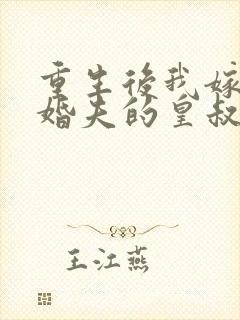 重生後我嫁
婚夫的皇叔
王江燕